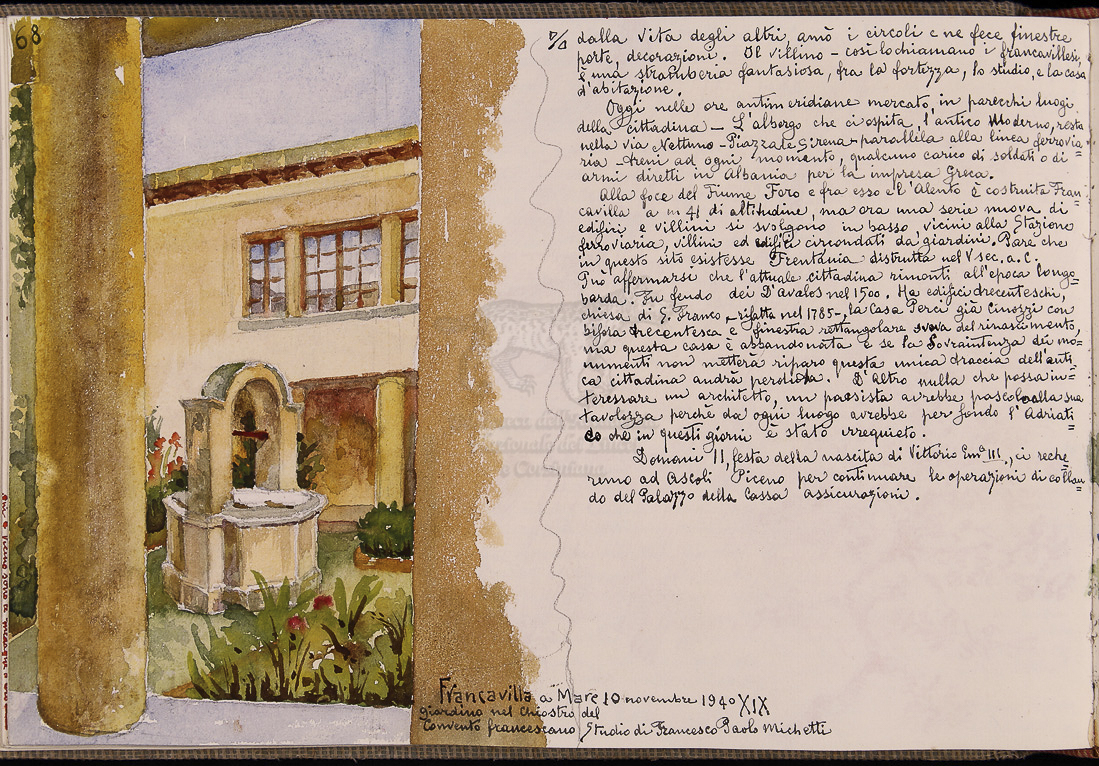 68
dalla vita degli altri, amò i circoli e ne fece finestre
porte, decorazioni. Il villino - così lo chiamano i francavillesi,
è una stramberia fantasiosa, fra la fortezza, lo studio, e la casa
d'abitazione.
Oggi nelle ore antimeridiane mercato, in parecchi luogi
della cittadina - L'albergo che ci ospita, l'antico Moderno, resta
nella via Nettuno - Piazzale Sirena - parallila alla linea ferrovia=
ria - treni ad ogni momento, qualcuno carico di soldati o di
armi diretti in Albania per la impresa Greca.
Alla foce del Fiume Foro e fra esso e l'Alento è costruita Fran=
cavilla a m 41 di altitudine, ma ora una serie nuova di
edifici e villini si svolgono in basso, vicini alla Stazione
ferroviaria, villini ed edifici circondati da giardini. Pare che
in questo sito esistesse Frentania distrutta nel V sec. a. C.
Può affermarsi che l'attuale cittadina rimonti all'epoca longo=
barda. Fu feudo dei D'avalos nel 1500. Ha edifici trecenteschi,
chiesa di S. Franco, - rifatta nel 1785 -, la Casa Perci già Cinozzi con
bifora trecentesca e finestra rettangolare del rinascimento,
ma questa casa è abbandonata e se la Sovraintenza dei mo=
numenti non metterà riparo questa unica traccia dell'anti=
ca cittadina andrà perdita. D'Altro nulla che possa in=
teressare un architetto, un paesista avrebbe pascolo alla sua
tavolozza perchè da ogni luogo avrebbe per fondo l'Adriati=
co che in questi giorni è stato irrequieto.
Domani 11, festa della nascita di Vittorio Em. III., ci reche=
remo ad Ascoli Piceno per continuare le operazioni di collau=
do del Palazzo della Cassa assicurazioni.
Francavilla a Mare 10 novembre 1940 XIX
giardino nel chiostro del
Convento francescano, Studio di Francesco Paolo Michetti